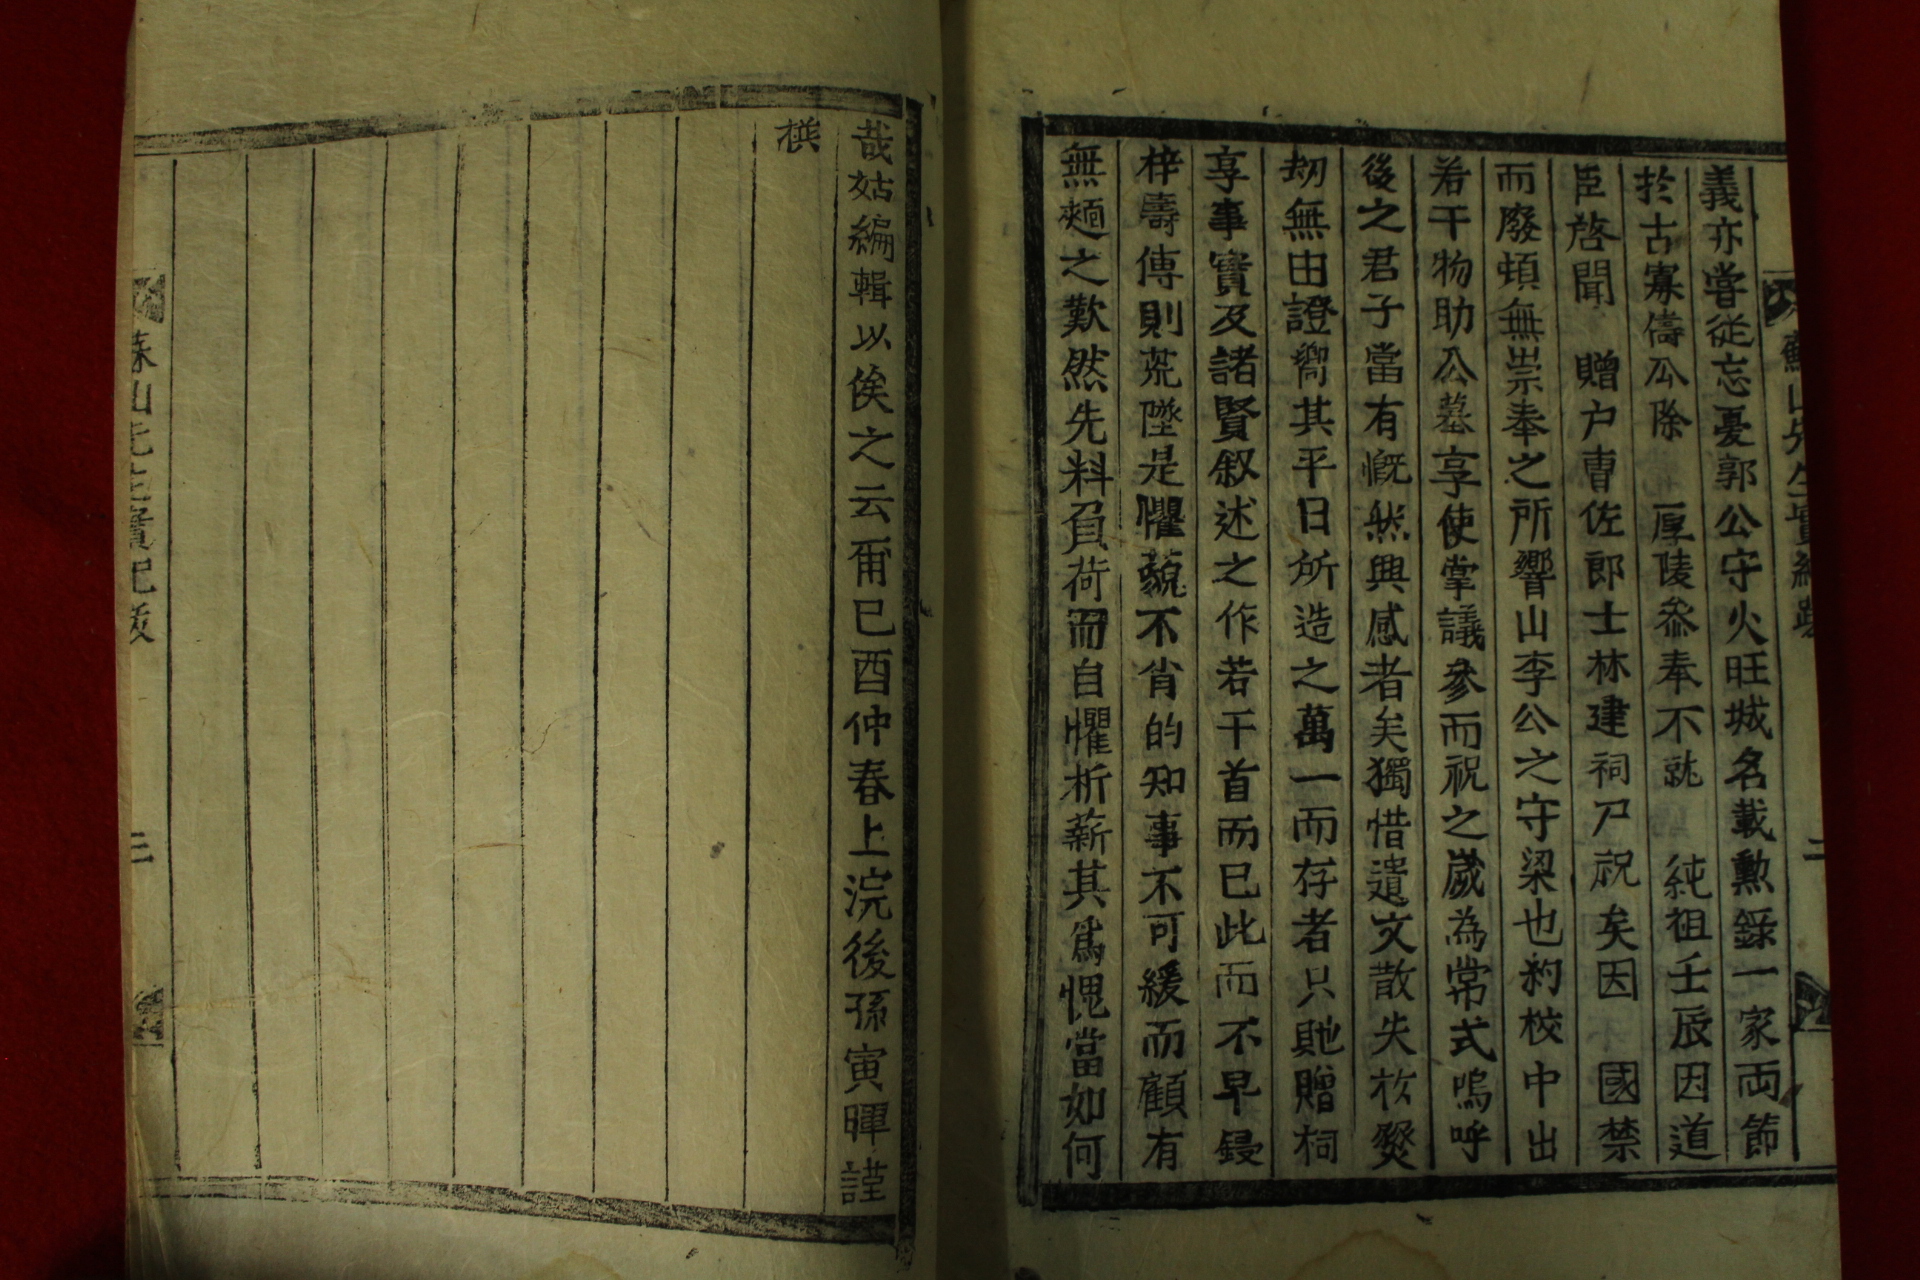 義亦嘗從忘憂郭公守火旺城名載勳錄一家両節
於古寡儔公除 厚陵叅奉不就 純祖壬辰因道
臣啓聞 贈户曺佐郎士林建祠尸祝矣因 國禁
而廢頓無崇奉之所響山李公之守梁也豹校中出
若干物助公墓享使掌議參而祝之歲為常式嗚呼
後之君子當有慨然興感者矣獨惜遺文散失於燹
刼無由證嚮其平日所造之萬一而存者只貤贈祠
享事實及諸賢叙述之作若干首而已此而不早鋟
梓壽傳則荒墜是懼藐不肖的知事不可緩而顧有
無麵之歎然先料負荷而自懼析薪其爲愧當如何
哉姑編輯以俟之云爾己酉仲春上浣後孫寅暉謹
撰
蘇山先生實紀跋
二
蘇山先生實紀跋
三